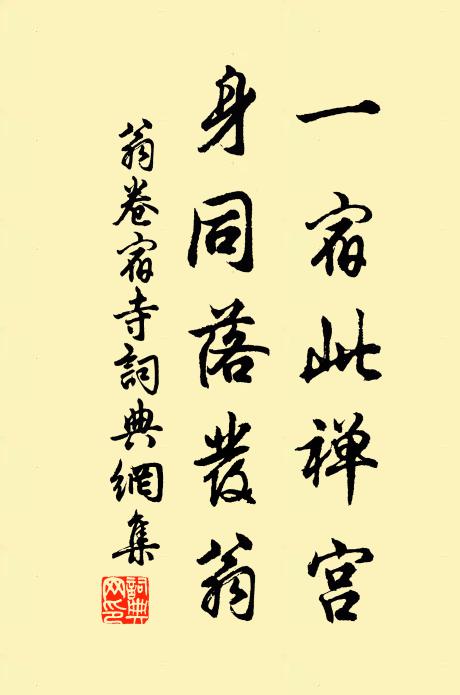 一宿此禅宫
身同落發翁
翁卷宿寺詞典網集
詞典網印